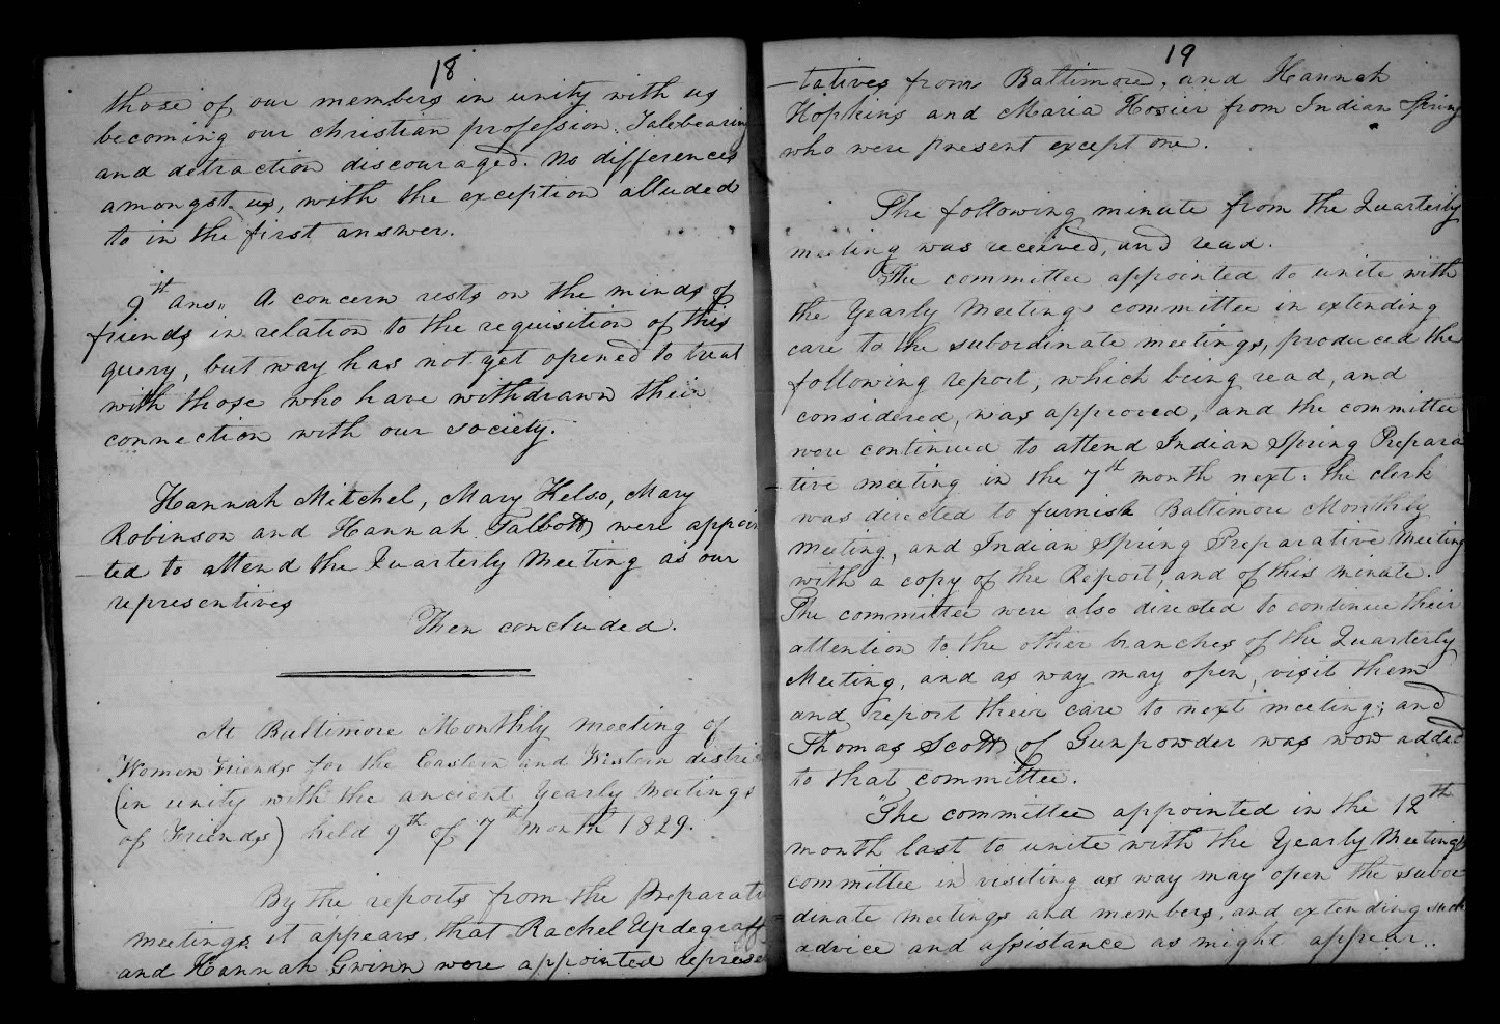 18
those of our members in unity with us
becoming our christian profession. Talebearing
and detraction discouraged. No differences
amongst us, with the exception alluded
to in the first answer.
9th Ans,, A concern rests on the minds of
friends in relation to the requisition of this
query, but way has not yet opened to treat
with those who have withdrawn their
connection with our society.
Hannah Mitchel, Mary Kelso, Mary
Robinson and Hannah Talbott were appoin
-ted to attend the Quarterly Meeting as our
representives
Then concluded.
At Baltimore Monthly meeting of
Women Friends for the Eastern and Western distric
(in unity with the ancient Yearly Meetings
of Friends) held 9th of 7th month 1829.
By the reports from the Preparati
meetings it appears, that Rachel Updegraff
and Hannah Gwinn were appointed represe
19
-tatives from Baltimore, and Hannah
Hopkins and Maria Hosier from Indian Spring
who were present except one.
The following minute from the Quarterly
meeting was received, and read.
"The committee appointed to unite with
the Yearly Meetings committee in extending
care to the subordinate meetings, produced the
following report, which being read, and
considered, was approved, and the committee
were continued to attend Indian Spring Prepara
-tive meeting in the 7th month next: the clerk
was directed to furnish Baltimore Monthly
meeting, and Indian Spring Preparative Meeting
with a copy of the Report, and of this minute.
The committee were also directed to continue their
attention to the other branches of the Quarterly
Meeting, and as way may open, visit them
and report their care to next meeting; and
Thomas Scott of Gunpowder was now added
to that committee.
"The committee appointed in the 12th
month last to unite with the Yearly Meetings
committee in visiting as way may open the subor
dinate meetings and members, and extending such
advice and assistance as might appear..